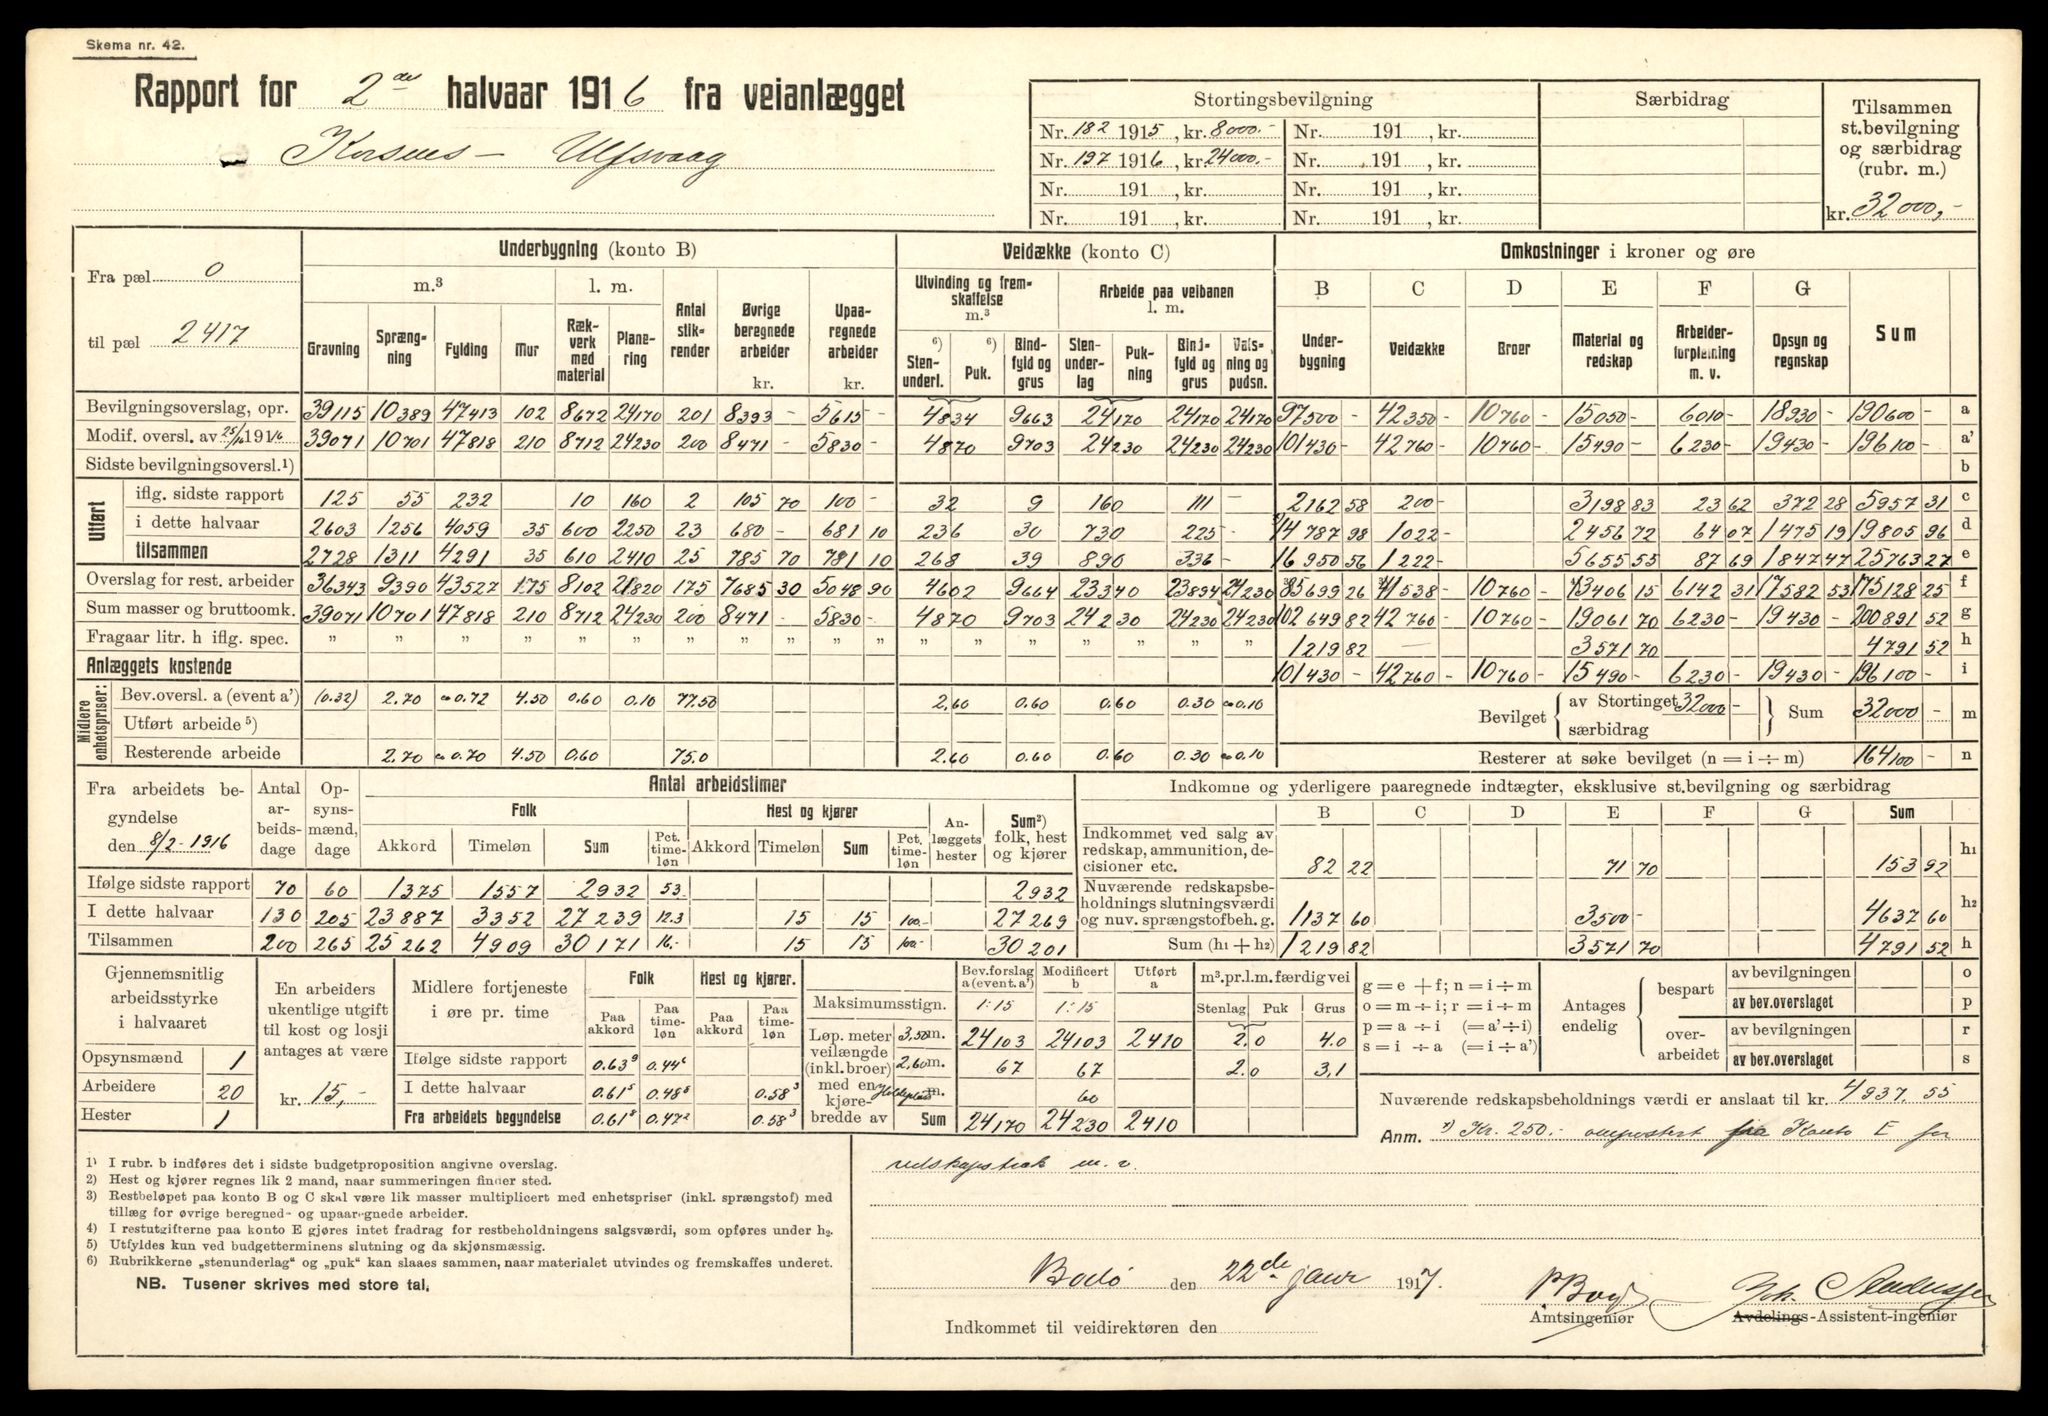 Skema nr. 42.
Rapport for 2det halvaar 1916 fra veianlægget
Korsnes - Ulfsvaag
Stortingsbevilgning | Særbidrag | Tilsammen st.bevilgning og særbidrag (rubr. m.)
Nr. 182 1915, kr. 8000.- | Nr. 191 , kr.
Nr. 197 1916, kr. 24000.- | Nr. 191 , kr.
Nr. 191 , kr. | Nr. 191 , kr.
Nr. 191 , kr. | Nr. 191 , kr.
kr. 32000,-
Fra pæl 0
til pæl 2417
Underbygning (konto B) | Veidække (konto C) | Omkostninger i kroner og øre
m.³ | l. m. | Antal stikrender | Øvrige beregnede arbeider kr. | Upaaregnede arbeider kr. | Utvinding og fremskaffelse m.³ | Arbeide paa veibanen l. m. | B | C | D | E | F | G | Sum
Gravning | Sprængning | Fylding | Mur | Rækverk med material | Planering | ⁶) Stenunderl. | ⁶) Puk. | Bindfyld og grus | Stenunderlag | Pukning | Bindfyld og grus | Valsning og pudsn. | Underbygning | Veidække | Broer | Material og redskap | Arbeiderforpleining m. v. | Opsyn og regnskap
Bevilgningsoverslag, opr. | 39115 | 10389 | 47413 | 102 | 8672 | 24170 | 201 | 8393 - | 5615 - | 4834 | 9663 | 24170 | 24170 | 24170 | 97500 - | 42350 - | 10760 - | 15050 - | 6010 - | 18930 - | 190600 - | a
Modif. oversl. av 25/6 1916 | 39071 | 10701 | 47818 | 210 | 8712 | 24230 | 200 | 8471 - | 5830 - | 4870 | 9703 | 24230 | 24230 | 24230 | 101430 - | 42760 - | 10760 - | 15490 - | 6230 - | 19430 - | 196100 - | a'
Sidste bevilgningsoversl.¹) | b
Utført
iflg. sidste rapport | 125 | 55 | 232 | 10 | 160 | 2 | 105 70 | 100 - | 32 | 9 | 160 | 111 | - | 2162 58 | 200 - | 3198 83 | 23 62 | 372 28 | 5957 31 | c
i dette halvaar | 2603 | 1256 | 4059 | 35 | 600 | 2250 | 23 | 680 - | 681 10 | 236 | 30 | 730 | 225 | - | 14787 98 | 1022 - | 2456 72 | 64 07 | 1475 19 | 19805 96 | d
tilsammen | 2728 | 1311 | 4291 | 35 | 610 | 2410 | 25 | 785 70 | 781 10 | 268 | 39 | 890 | 336 | - | 16950 56 | 1222 - | 5655 55 | 87 69 | 1847 47 | 25763 27 | e
Overslag for rest. arbeider | 36343 | 9390 | 43527 | 175 | 8102 | 21820 | 175 | 7685 30 | 5048 90 | 4602 | 9664 | 23340 | 23894 | 24230 | 85699 26 | 41538 - | 10760 - | 13406 15 | 6142 31 | 17582 53 | 175128 25 | f
Sum masser og bruttoomk. | 39071 | 10701 | 47818 | 210 | 8712 | 24230 | 200 | 8471 - | 5830 - | 4870 | 9703 | 24230 | 24230 | 24230 | 102649 82 | 42760 - | 10760 - | 19061 70 | 6230 - | 19430 - | 200891 52 | g
Fragaar litr. h iflg. spec. | " | " | " | " | " | " | " | " | " | " | " | " | " | " | " | " | " | 1219 82 | - | 3571 70 | 4791 52 | h
Anlæggets kostende | 101430 - | 42760 - | 10760 - | 15490 - | 6230 - | 19430 - | 196100 - | i
Midlere enhetspriser:
Bev.oversl. a (event a') | (0.32) | 2.70 | ca 0.72 | 4.50 | 0.60 | 0.10 | 77.50 | 2.60 | 0.60 | 0.60 | 0.30 | ca 0.10
Utført arbeide⁵)
Resterende arbeide | 2.70 | ca 0.70 | 4.50 | 0.60 | 75.0 | 2.60 | 0.60 | 0.60 | 0.30 | ca 0.10
Bevilget { av Stortinget 32000 - særbidrag } Sum 32000 - m
Resterer at søke bevilget (n = i ÷ m) 164100 - n
Fra arbeidets begyndelse den 8/2 - 1916 | Antal arbeidsdage | Opsynsmænd, dage
Antal arbeidstimer
Folk | Hest og kjører | Anlæggets hester | Sum²) folk, hest og kjører
Akkord | Timeløn | Sum | Pct. timeløn | Akkord | Timeløn | Sum | Pct. timeløn
Ifølge sidste rapport | 70 | 60 | 1375 | 1557 | 2932 | 53. | 2932
I dette halvaar | 130 | 205 | 23887 | 3352 | 27239 | 12.3 | 15 | 15 | 100.- | 27269
Tilsammen | 200 | 265 | 25262 | 4909 | 30171 | 16.- | 15 | 15 | 100.- | 30201
Indkomne og yderligere paaregnede indtægter, eksklusive st.bevilgning og særbidrag
B | C | D | E | F | G | Sum
Indkommet ved salg av redskap, ammunition, decisioner etc. | 82 22 | 71 70 | 153 92 | h₁
Nuværende redskapsbeholdnings slutningsværdi og nuv. sprængstofbeh. g. | 1137 60 | 3500 - | 4637 60 | h₂
Sum (h₁ + h₂) | 1219 82 | 3571 70 | 4791 52 | h
Gjennemsnitlig arbeidsstyrke i halvaaret
Opsynsmænd 1
Arbeidere 20
Hester 1
En arbeiders ukentlige utgift til kost og losji antages at være
kr. 15,-
Midlere fortjeneste i øre pr. time | Folk | Hest og kjører.
Paa akkord | Paa timeløn | Paa akkord | Paa timeløn
Ifølge sidste rapport | 0.63⁹ | 0.44⁶
I dette halvaar | 0.61⁵ | 0.48⁸ | 0.58³
Fra arbeidets begyndelse | 0.61⁸ | 0.47² | 0.58³
Bev.forslag a (event. a') | Modificert b | Utført a
Maksimumsstign. | 1:15 | 1:15
Løp. meter veilængde (inkl. broer) med en kjørebredde av
3,50 m. | 24103 | 24103 | 2410
2,60 m. | 67 | 67
m. | 60
Sum | 24170 | 24230 | 2410
m³. pr. l. m. færdig vei
Stenlag | Puk | Grus
2.0 | 4.0
2.0 | 3,1
g = e + f; n = i ÷ m
o = m ÷ i; r = i ÷ m
p = a ÷ i (= a' ÷ i)
s = i ÷ a (= i ÷ a')
Antages endelig
bespart { av bevilgningen o
av bev.overslaget p
overarbeidet { av bevilgningen r
av bev.overslaget s
Nuværende redskapsbeholdnings værdi er anslaat til kr. 4937.55
Anm. ¹) Kr. 250.- ompostert fra Konto E for
redskapstræk m. v.
¹) I rubr. b indføres det i sidste budgetproposition angivne overslag.
2) Hest og kjører regnes lik 2 mand, naar summeringen finder sted.
3) Restbeløpet paa konto B og C skal være lik masser multiplicert med enhetspriser (inkl. sprængstof) med
tillæg for øvrige beregned- og upaaregnede arbeider.
4) I restutgifterne paa konto E gjøres intet fradrag for restbeholdningens salgsværdi, som opføres under h₂.
5) Utfyldes kun ved budgetterminens slutning og da skjønsmæssig.
6) Rubrikkerne „stenunderlag“ og „puk“ kan slaaes sammen, naar materialet utvindes og fremskaffes underet.
NB. Tusener skrives med store tal.
Bodö den 22de janr 1917.
Amtsingeniør
Avdelings-Assistent-ingeniør
Indkommet til veidirektøren den